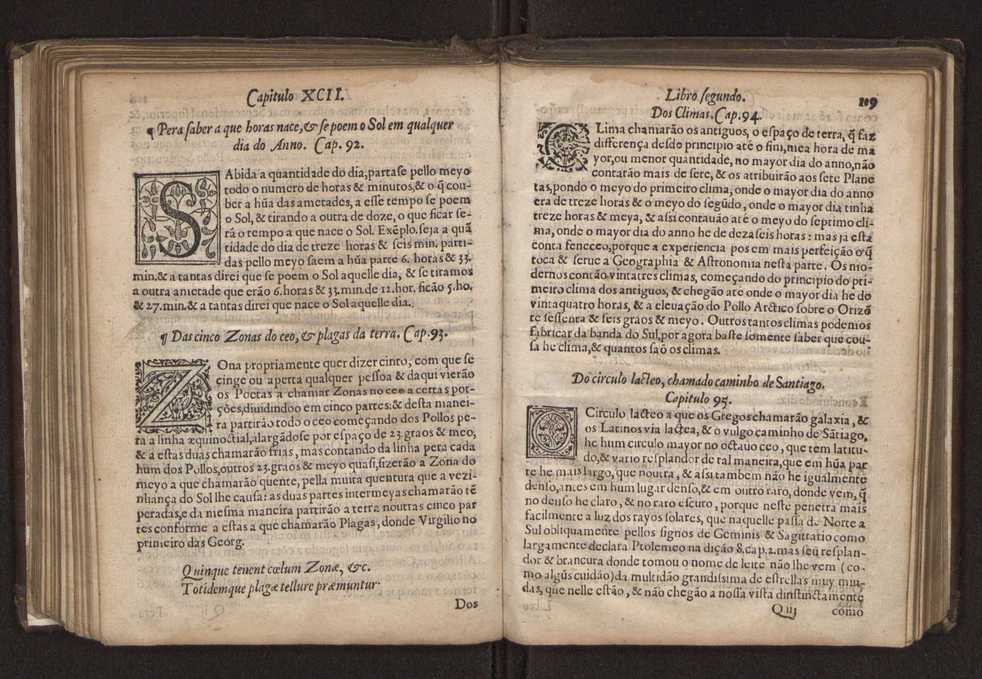 Capitulo XCII.
¶ Pera saber a que horas nace, & se poem o Sol em qualquer
dia do Anno. Cap. 92.
SAbida a quantidade do dia, partase pello meyo
todo o numero de horas & minutos, & o q̃ cou-
ber a hũa das ametades, a esse tempo se poem
o Sol, & tirando a outra de doze, o que ficar se-
rá o tempo a que nace o Sol. Exẽplo. seja a quã
tidade do dia de treze horas & seis min. parti-
das pello meyo saem a hũa parte 6. horas & 33.
min. & a tantas direi que se poem o Sol aquelle dia, & se tiramos
a outra ametade que erão 6. horas & 33. min. de 12. hor. ficão 5. ho.
& 27. min. & a tantas direi que nace o Sol aquelle dia.
¶ Das cinco Zonas do ceo, & plagas da terra. Cap. 93.
ZOna propriamente quer dizer cinto, com que se
çinge ou aperta qualquer pessoa & daqui vierão
os Poetas a chamar Zonas no ceo a certas por-
ções, diuidindoo em cinco partes: & desta manei-
ra partirão todo o ceo começando dos Pollos pe-
ra a linha æquinoctial, alargãdose por espaço de 23. graos & meo,
& a estas duas chamarão frias, mas contando da linha pera cada
hum dos Pollos, outros 23. graos & meyo quasi, fizerão a Zona do
meyo a que chamarão quente, pella muita quentura que a vezi-
nhança do Sol lhe causa: as duas partes intermeyas chamarão tẽ
peradas, e da mesma maneira partirão a terra noutras cinco par
tes conforme a estas a que chamarão Plagas, donde Virgilio no
primeiro das Georg.
Quinque tenent cœlum Zonæ, &c.
Totidemque plagæ tellure præmuntur.
Dos
Libro segundo.
109
Dos Climas. Cap. 94.
CLima chamarão os antiguos, o espaço de terra, q̃ faz
differença desdo principio atè o fim, mea hora de ma
yor, ou menor quantidade, no mayor dia do anno, não
contarão mais de sete, & os atribuirão aos sete Plane
tas, pondo o meyo do primeiro clima, onde o mayor dia do anno
era de treze horas & o meyo do segũdo, onde o mayor dia tinha
treze horas & meya, & assi contauão atè o meyo do septimo cli-
ma, onde o mayor dia do anno he de dezaseis horas: mas ja esta
conta feneceo, porque a experiencia pos em mais perfeição o q̃
toca & serue a Geographia & Astronomia nesta parte. Os mo-
dernos contão vintatres climas, começando do principio do pri-
meiro clima dos antiguos, & chegão atè onde o mayor dia he do
vintaquatro horas, & a eleuação do Pollo Arctico sobre o Orizõ
te sessenta & seis graos & meyo. Outros tantos climas podemos
fabricar da banda do Sul, por agora baste somente saber que cou-
sa he clima, & quantos saõ os climas.
Do circulo lacteo, chamado caminho de Santiago.
Capitulo 95.
O Circulo lacteo a que os Gregos chamarão galaxia, &
os Latinos via lactea, & o vulgo caminho de Sãtiago,
he hum circulo mayor no octauo ceo, que tem latitu-
do, & vario resplandor de tal maneira, que em hũa par
te he mais largo, que noutra, & assi tambem não he igualmente
denso, antes em hum lugar denso, & em outro raro, donde vem, q̃
no denso he claro, & no raro escuro, porque neste penetra mais
facilmente a luz dos rayos solares, que naquelle passa de Norte a
Sul obliquamente pellos signos de Geminis & Sagittario como
largamente declara Ptolemeo na dição 8. cap. 2. mas seu resplan-
dor & brancura donde tomou o nome de leite não lhe vem (co-
mo algũs cuidão) da multidão grandissima de estrellas muy miu-
das, que nelle estão, & não chegão a nossa vista dinstinctamente
Q iij
como